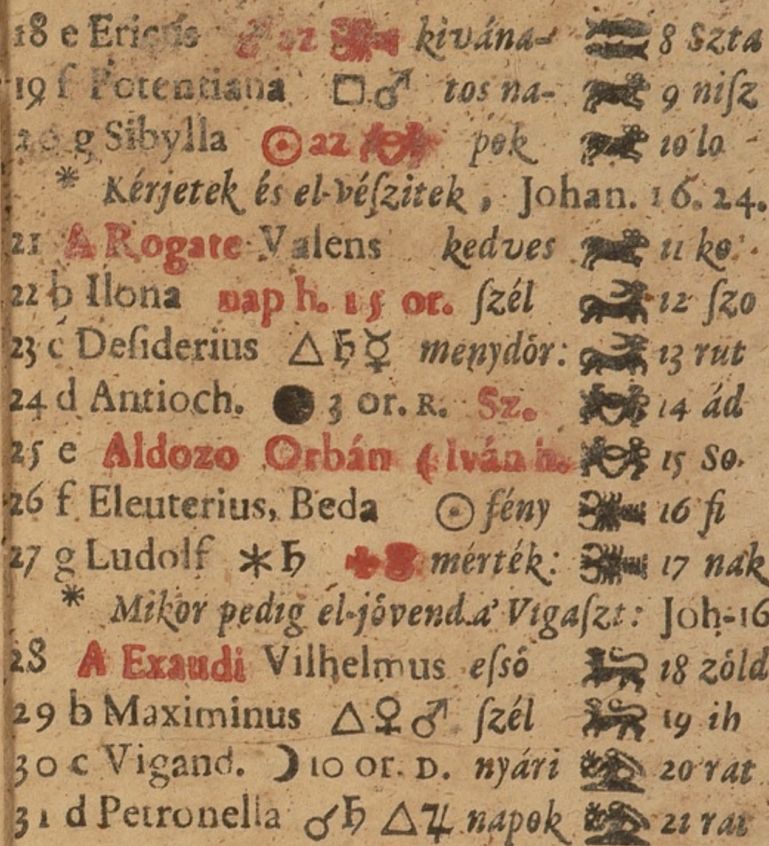 18 e Ericus ♂ 22 kivána- 8 Szta
19 f Potentiana □ ♂ tos na- 9 niſz
20 g Sibylla ☉ 22 pok 10 lo
* Kérjetek és el-véſzitek, Johan. 16. 24.
21 A Rogate Valens kedves 11 ko
22 b Ilona nap h. 15 or. ſzél 12 ſzo
23 c Deſiderius △ ♄ ☿ menydör: 13 rut
24 d Antioch. ● 3 or. R. Sz. 14 ád
25 e Aldozo Orbán (Iván h. 15 So.
26 f Eleuterius, Beda ☉ fény 16 fi
27 g Ludolf ⚹ ♄ mérték: 17 nak
* Mikor pedig el-jövend a' Vigaſzt: Joh-16
28 A Exaudi Vilhelmus eſsö 18 zöld
29 b Maximinus △ ♀ ♂ ſzél 19 ih
30 c Vigand. ☽ 10 or. D. nyári 20 rat
31 d Petronella ☌ ♄ △ ♃ napok 21 rai